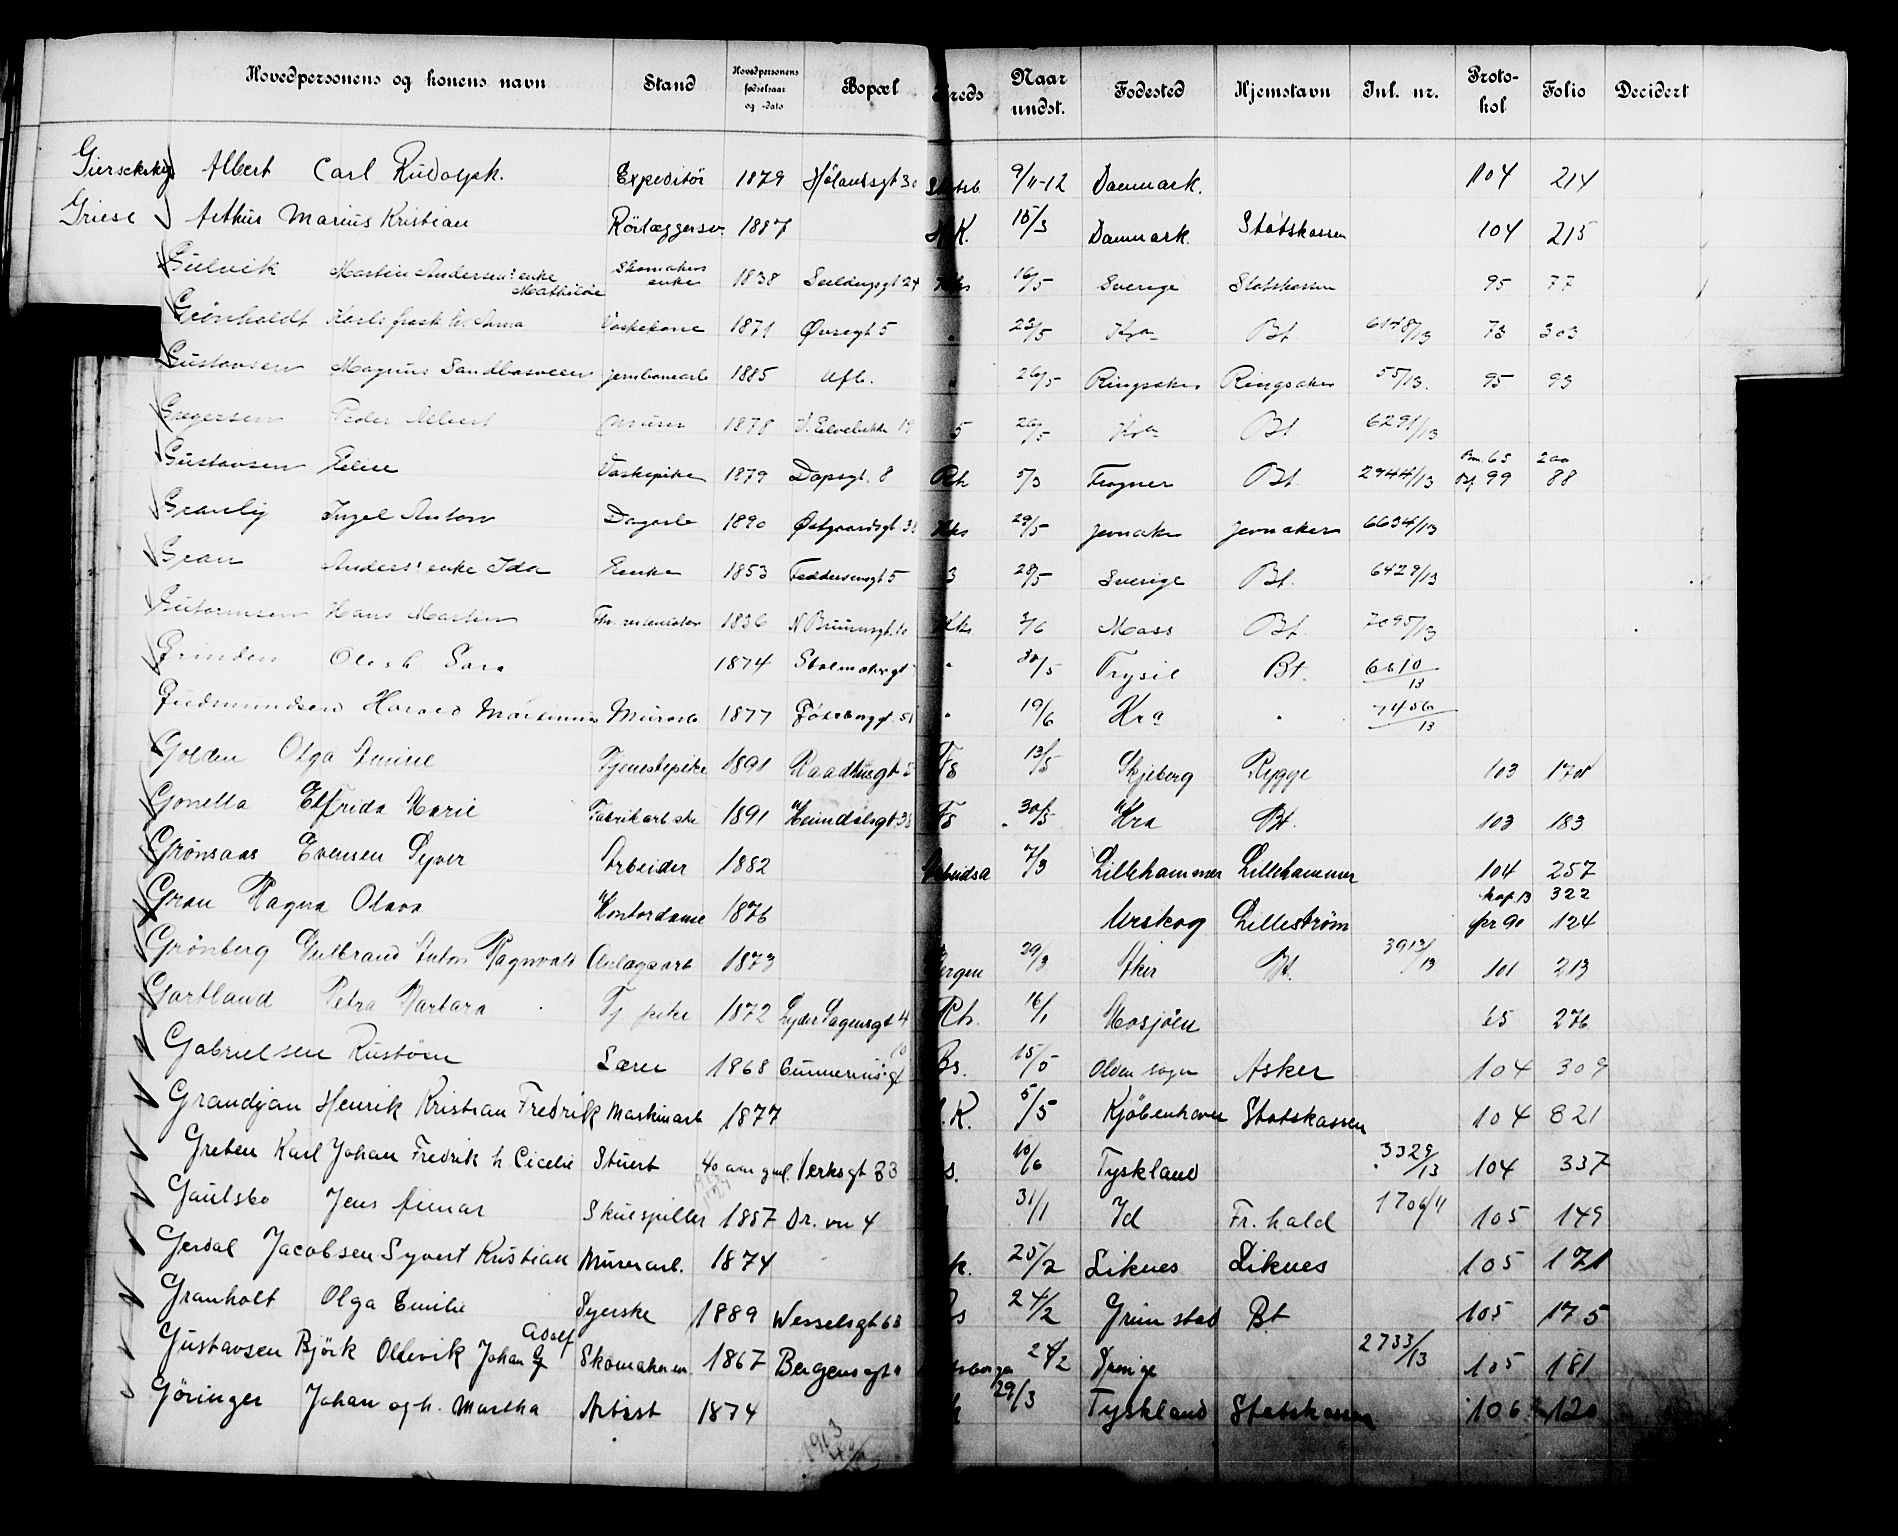 Hovedpersonens og konens navn Stand Hovedpersonens fødselsaar og -dato Bopæl Kreds Naar undst. Fødested Hjemstavn Inl. nr. Protokol Folio Decidert
Albert Carl Rudolph. Expeditör 1879 Hølandsgt 30 9/11-12 Danmark. 104 214
Griese Arthur Marius Kristian Rörlæggersv. 1887 H.K. 15/3 Danmark. Statskassen 104 215
Gulvik Martin Andersens enke Mathilde Skomakers enke 1838 Seildugsgt 24 16/5 Sverige Statskassen 95 77
Grönholdt Karls frask. h. Anna Vaskekone 1871 Øvregt 5 23/5 Kra Bt 6148/13 73 303
Gustavsen Magnus Sandbasveen Jernbanearb 1885 Ufb. " 26/5 Ringsaker Ringsaker 55/13. 95 93
Gregersen Peder Albert Murer 1878 19 5 26/5 Kra Bt 6291/13
Gustavsen Eline Vaskepike 1879 Dapsgt. 8 Rh 5/3 Frogner Bt. 2944/13 99 88
65 200
Granly Ingel Anton Dagarb 1890 Østgaardsgt 29/5 Jevnaker Jevnaker 6634/13
Gran Anders' enke Ida Enke 1853 Feddersensgt 5 3 28/5 Sverige Bt. 6429/13
Gutormsen Hans Martin 1836 N Bruunsgt. 10 3/6 Moss Bt. 7095/13
Grinden Olesh Sara 1874 Stolmakergt " 30/5 Trysil Bt. 6610/13
Gudmundsen Harald Murarb 1877 Göteborggt. 51 " 19/6 Kra " 7456/13
Golden Olga Amine Tjenestepike 1891 Raadhusgt 5 Fs 13/5 Skjeberg Rygge 103 170
Gonella Elfrida Marie Fabrikarbske 1891 Heimdalsgt 38 Fs 30/5 Kra Bt. 103 183
Grønsaas Evensen Syver Arbeider 1882 7/3 Lillehammer Lillehammer 104 257
Gran Magna Olava Kontordame 1876 Urskog Lilleström kop. 13 322
pr 90 124
Grönberg Gulbrand Anton Ragnvald Anlægsarb 1873 Bergen 29/3 Aker Bt. 3913/13 101 213
Gartland Petra Barbara Tj pike 1872 Lyder Sagensgt 4 Rh. 16/1 Mosjöen 65 276
Gabrielsen Kustöm Lærer 1868 Gunnerius' gt 10 Bs. 15/5 Olden sogn Asker 104 309
Grandjan Henrik Kristian Fredrik Maskinarb 1877 K. 5/5 Kjöbenhavn Statskassen 104 321
Greten Karl Johan Fredrik h. Cicelie Stuert 40 aar gml. Verksgt 33 s. 10/6 Tyskland 3329/13 104 337
Gaulsbo Jens Einar Skuespiller 1887 Dr. vn 4 31/1 Id Fr. hald 1706/11 105 149
Gerdal Jacobsen Syvert Kristian Murerarb. 1874 k. 25/2 Liknes Liknes 105 171
Granholt Olga Emilie Syerske 1889 Wesselsgt 63 s 24/2 Grimstad Bt 105 175
Gustavsen Björk Ollevik Johan Adolf Skomakersv. 1867 Bergensgt 24/2 Sverige 2733/13 105 181
Göringer Johan og h. Martha Artist 1874 29/3 Tyskland Statskassen 106 120
1913